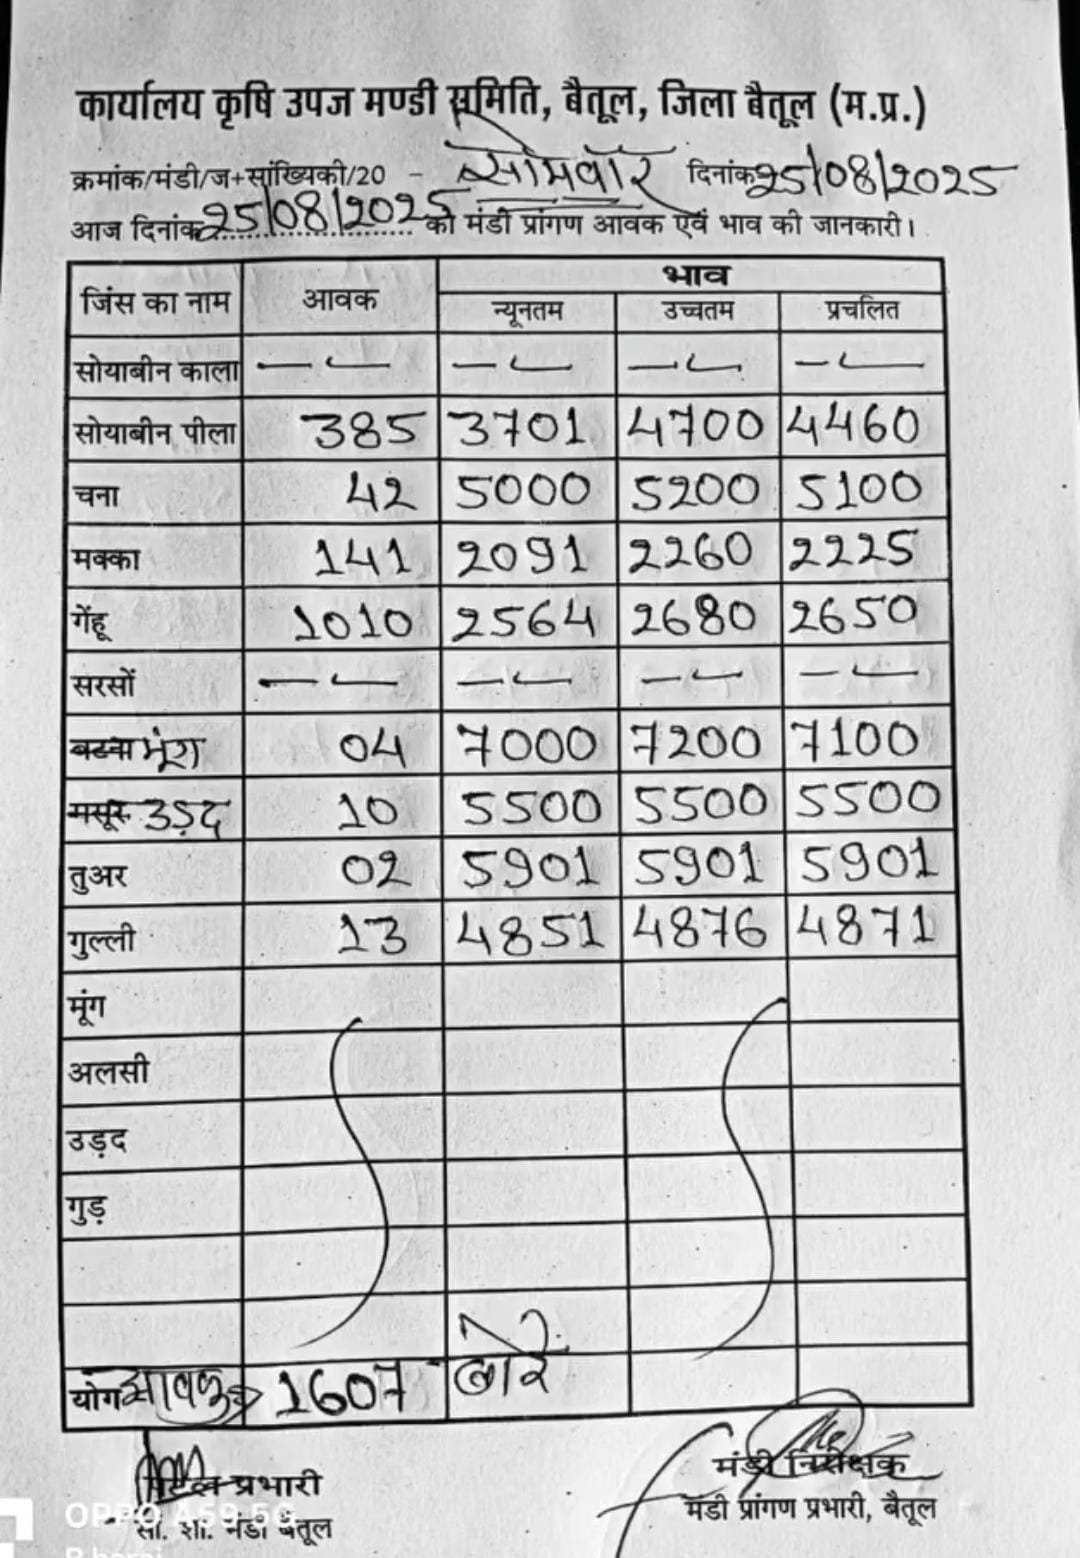 कार्यालय कृषि उपज मण्डी समिति, बैतूल, जिला बैतूल (म.प्र.)
क्रमांक/मंडी/ज+सांख्यिकी/20 - सोमवार दिनांक 25/08/2025
आज दिनांक 25/08/2025 को मंडी प्रांगण आवक एवं भाव की जानकारी।
जिंस का नाम आवक भाव
न्यूनतम उच्चतम प्रचलित
सोयाबीन काला — — — — — — — —
सोयाबीन पीला 385 3701 4700 4460
चना 42 5000 5200 5100
मक्का 141 2091 2260 2225
गेंहू 1010 2564 2680 2650
सरसों — — — — — — — —
बटना मूंग 04 7000 7200 7100
मसूर उड़द 10 5500 5500 5500
तुअर 02 5901 5901 5901
गुल्ली 13 4851 4876 4871
मूंग
अलसी
उड़द
गुड़
योग आवक 1607 बोरे
प्रभारी मंडी निरीक्षक
सां. शा. मंडी बैतूल मंडी प्रांगण प्रभारी, बैतूल
OPPO A59 5G